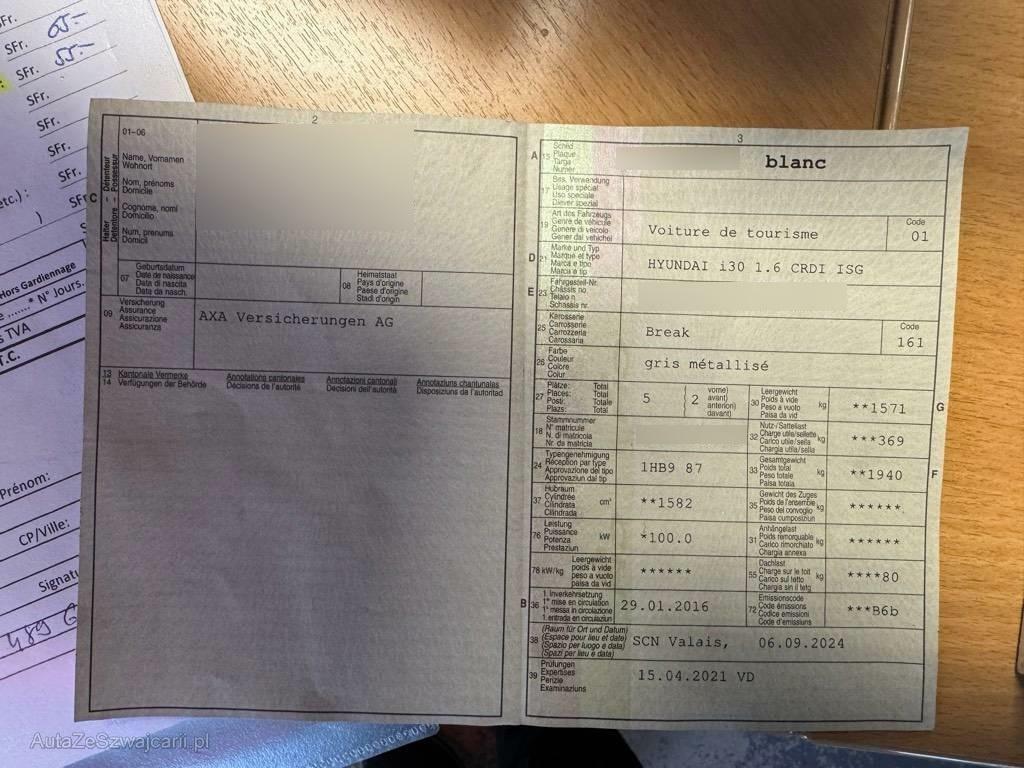 SFr.
SFr. 65.-
SFr. 55.-
SFr.
SFr.
SFr.
SFr.
etc.) :
)
Hors Gardiennage
* N° Jours.
TVA
T.C.
Prénom:
CP/Ville:
Signatu
489
2
01-06
Halter Détenteur
Detentore Possessur
C
Name, Vornamen
Wohnort
Nom, prénoms
Domicile
Cognome, nomi
Domicilio
Num, prenums
Domicil
07 Geburtsdatum
Date de naissance
Data di nascita
Data da nasch.
08 Heimatstaat
Pays d'origine
Paese d'origine
Stadi d'origin
09 Versicherung
Assurance
Assicurazione
Assicuranza
AXA Versicherungen AG
13 Kantonale Vermerke Annotations cantonales Annotazioni cantonali Annotaziuns chantunalas
14 Verfügungen der Behörde Décisions de l'autorité Decisioni dell'autorità Disposiziuns da l'autoritad
3
A 15 Schild
Plaque
Targa
Numer
blanc
17 Bes. Verwendung
Usage spécial
Uso speciale
Diever spezial
19 Art des Fahrzeugs
Genre de véhicule
Genere di veicolo
Gener dal vehichel
Voiture de tourisme
Code
01
D 21 Marke und Typ
Marque et type
Marca e tipo
Marca e tip
HYUNDAI i30 1.6 CRDI ISG
E 23 Fahrgestell-Nr.
Châssis no
Telaio n.
Schassis nr.
25 Karosserie
Carrosserie
Carrozzeria
Carossaria
Break
Code
161
26 Farbe
Couleur
Colore
Colur
gris métallisé
27 Plätze: Total
Places: Total
Posti: Totale
Plazs: Total
5 ( 2 vorne)
avant)
anteriori)
davant)
30 Leergewicht
Poids à vide
Peso a vuoto
Paisa da vid
kg
**1571
G
18 Stammnummer
N° matricule
N. di matricola
Nr. da matricla
32 Nutz-/Sattellast
Charge utile/sellette
Carico utile/sella
Chargia utila/sella
kg
***369
24 Typengenehmigung
Réception par type
Approvazione del tipo
Approvaziun dal tip
1HB9 87
33 Gesamtgewicht
Poids total
Peso totale
Paisa totala
kg
**1940
F
37 Hubraum
Cylindrée
Cilindrata
Cilindrada
cm³
**1582
35 Gewicht des Zuges
Poids de l'ensemble
Peso del convoglio
Paisa cumposiziun
kg
******
76 Leistung
Puissance
Potenza
Prestaziun
kW
*100.0
31 Anhängelast
Poids remorquable
Carico rimorchiato
Chargia annexa
kg
******
78 kW/kg Leergewicht
poids à vide
peso a vuoto
paisa da vid
******
55 Dachlast
Charge sur le toit
Carico sul tetto
Chargia sin il tetg
kg
****80
B 36 1. Inverkehrsetzung
1re mise en circulation
1a messa in circolazione
1. entrada en circulaziun
29.01.2016
72 Emissionscode
Code émissions
Codice emissioni
Code d'emissiuns
***B6b
38 (Raum für Ort und Datum)
(Espace pour lieu et date)
(Spazio per luogo e data)
(Spazi per lieu e data)
SCN Valais, 06.09.2024
39 Prüfungen
Expertises
Perizie
Examinaziuns
15.04.2021 VD
AutaZeSzwajcarii.pl